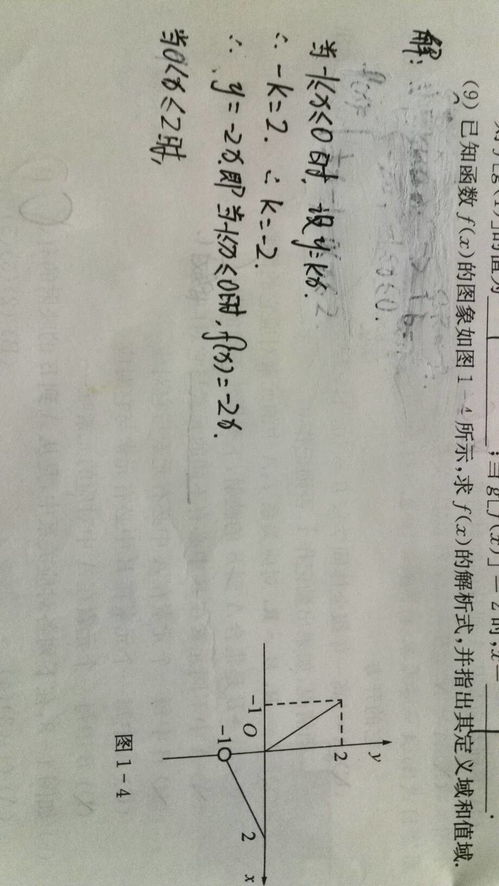 的值为 ; 当 g[f(x)]=2时,x= .
(9) 已知函数 f(x)的图象如图 1-4 所示,求 f(x)的解析式,并指出其定义域和值域.
解:
当-1≤x≤0时, 设y=kx.
∴ -k=2. ∴ k=-2.
∴ y=-2x.即当-1≤x≤0时, f(x)=-2x.
当0<x≤2时,
y
2
-1
O
2
x
-1
图 1-4